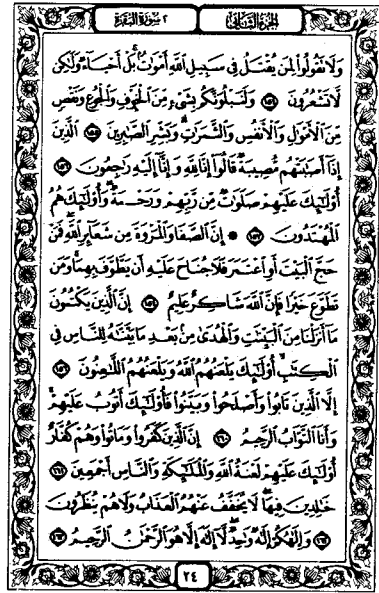 الجزء الثاني ٢ سورة البقرة
وَلَا تَقُولُوا لِمَن يُقْتَلُ فِي سَبِيلِ اللَّهِ أَمْوَاتٌ بَلْ أَحْيَاءٌ وَلَٰكِن
لَّا تَشْعُرُونَ ١٥٤ وَلَنَبْلُوَنَّكُم بِشَيْءٍ مِّنَ الْخَوْفِ وَالْجُوعِ وَنَقْصٍ
مِّنَ الْأَمْوَالِ وَالْأَنفُسِ وَالثَّمَرَاتِ وَبَشِّرِ الصَّابِرِينَ ١٥٥ الَّذِينَ
إِذَا أَصَابَتْهُم مُّصِيبَةٌ قَالُوا إِنَّا لِلَّهِ وَإِنَّا إِلَيْهِ رَاجِعُونَ ١٥٦
أُولَٰئِكَ عَلَيْهِمْ صَلَوَاتٌ مِّن رَّبِّهِمْ وَرَحْمَةٌ وَأُولَٰئِكَ هُمُ
الْمُهْتَدُونَ ١٥٧ ۞ إِنَّ الصَّفَا وَالْمَرْوَةَ مِن شَعَائِرِ اللَّهِ فَمَنْ
حَجَّ الْبَيْتَ أَوِ اعْتَمَرَ فَلَا جُنَاحَ عَلَيْهِ أَن يَطَّوَّفَ بِهِمَا وَمَن
تَطَوَّعَ خَيْرًا فَإِنَّ اللَّهَ شَاكِرٌ عَلِيمٌ ١٥٨ إِنَّ الَّذِينَ يَكْتُمُونَ
مَا أَنزَلْنَا مِنَ الْبَيِّنَاتِ وَالْهُدَىٰ مِن بَعْدِ مَا بَيَّنَّاهُ لِلنَّاسِ فِي
الْكِتَابِ أُولَٰئِكَ يَلْعَنُهُمُ اللَّهُ وَيَلْعَنُهُمُ اللَّاعِنُونَ ١٥٩
إِلَّا الَّذِينَ تَابُوا وَأَصْلَحُوا وَبَيَّنُوا فَأُولَٰئِكَ أَتُوبُ عَلَيْهِمْ
وَأَنَا التَّوَّابُ الرَّحِيمُ ١٦٠ إِنَّ الَّذِينَ كَفَرُوا وَمَاتُوا وَهُمْ كُفَّارٌ
أُولَٰئِكَ عَلَيْهِمْ لَعْنَةُ اللَّهِ وَالْمَلَائِكَةِ وَالنَّاسِ أَجْمَعِينَ ١٦١
خَالِدِينَ فِيهَا لَا يُخَفَّفُ عَنْهُمُ الْعَذَابُ وَلَا هُمْ يُنظَرُونَ
١٦٢ وَإِلَٰهُكُمْ إِلَٰهٌ وَاحِدٌ لَّا إِلَٰهَ إِلَّا هُوَ الرَّحْمَٰنُ الرَّحِيمُ ١٦٣
٢٤